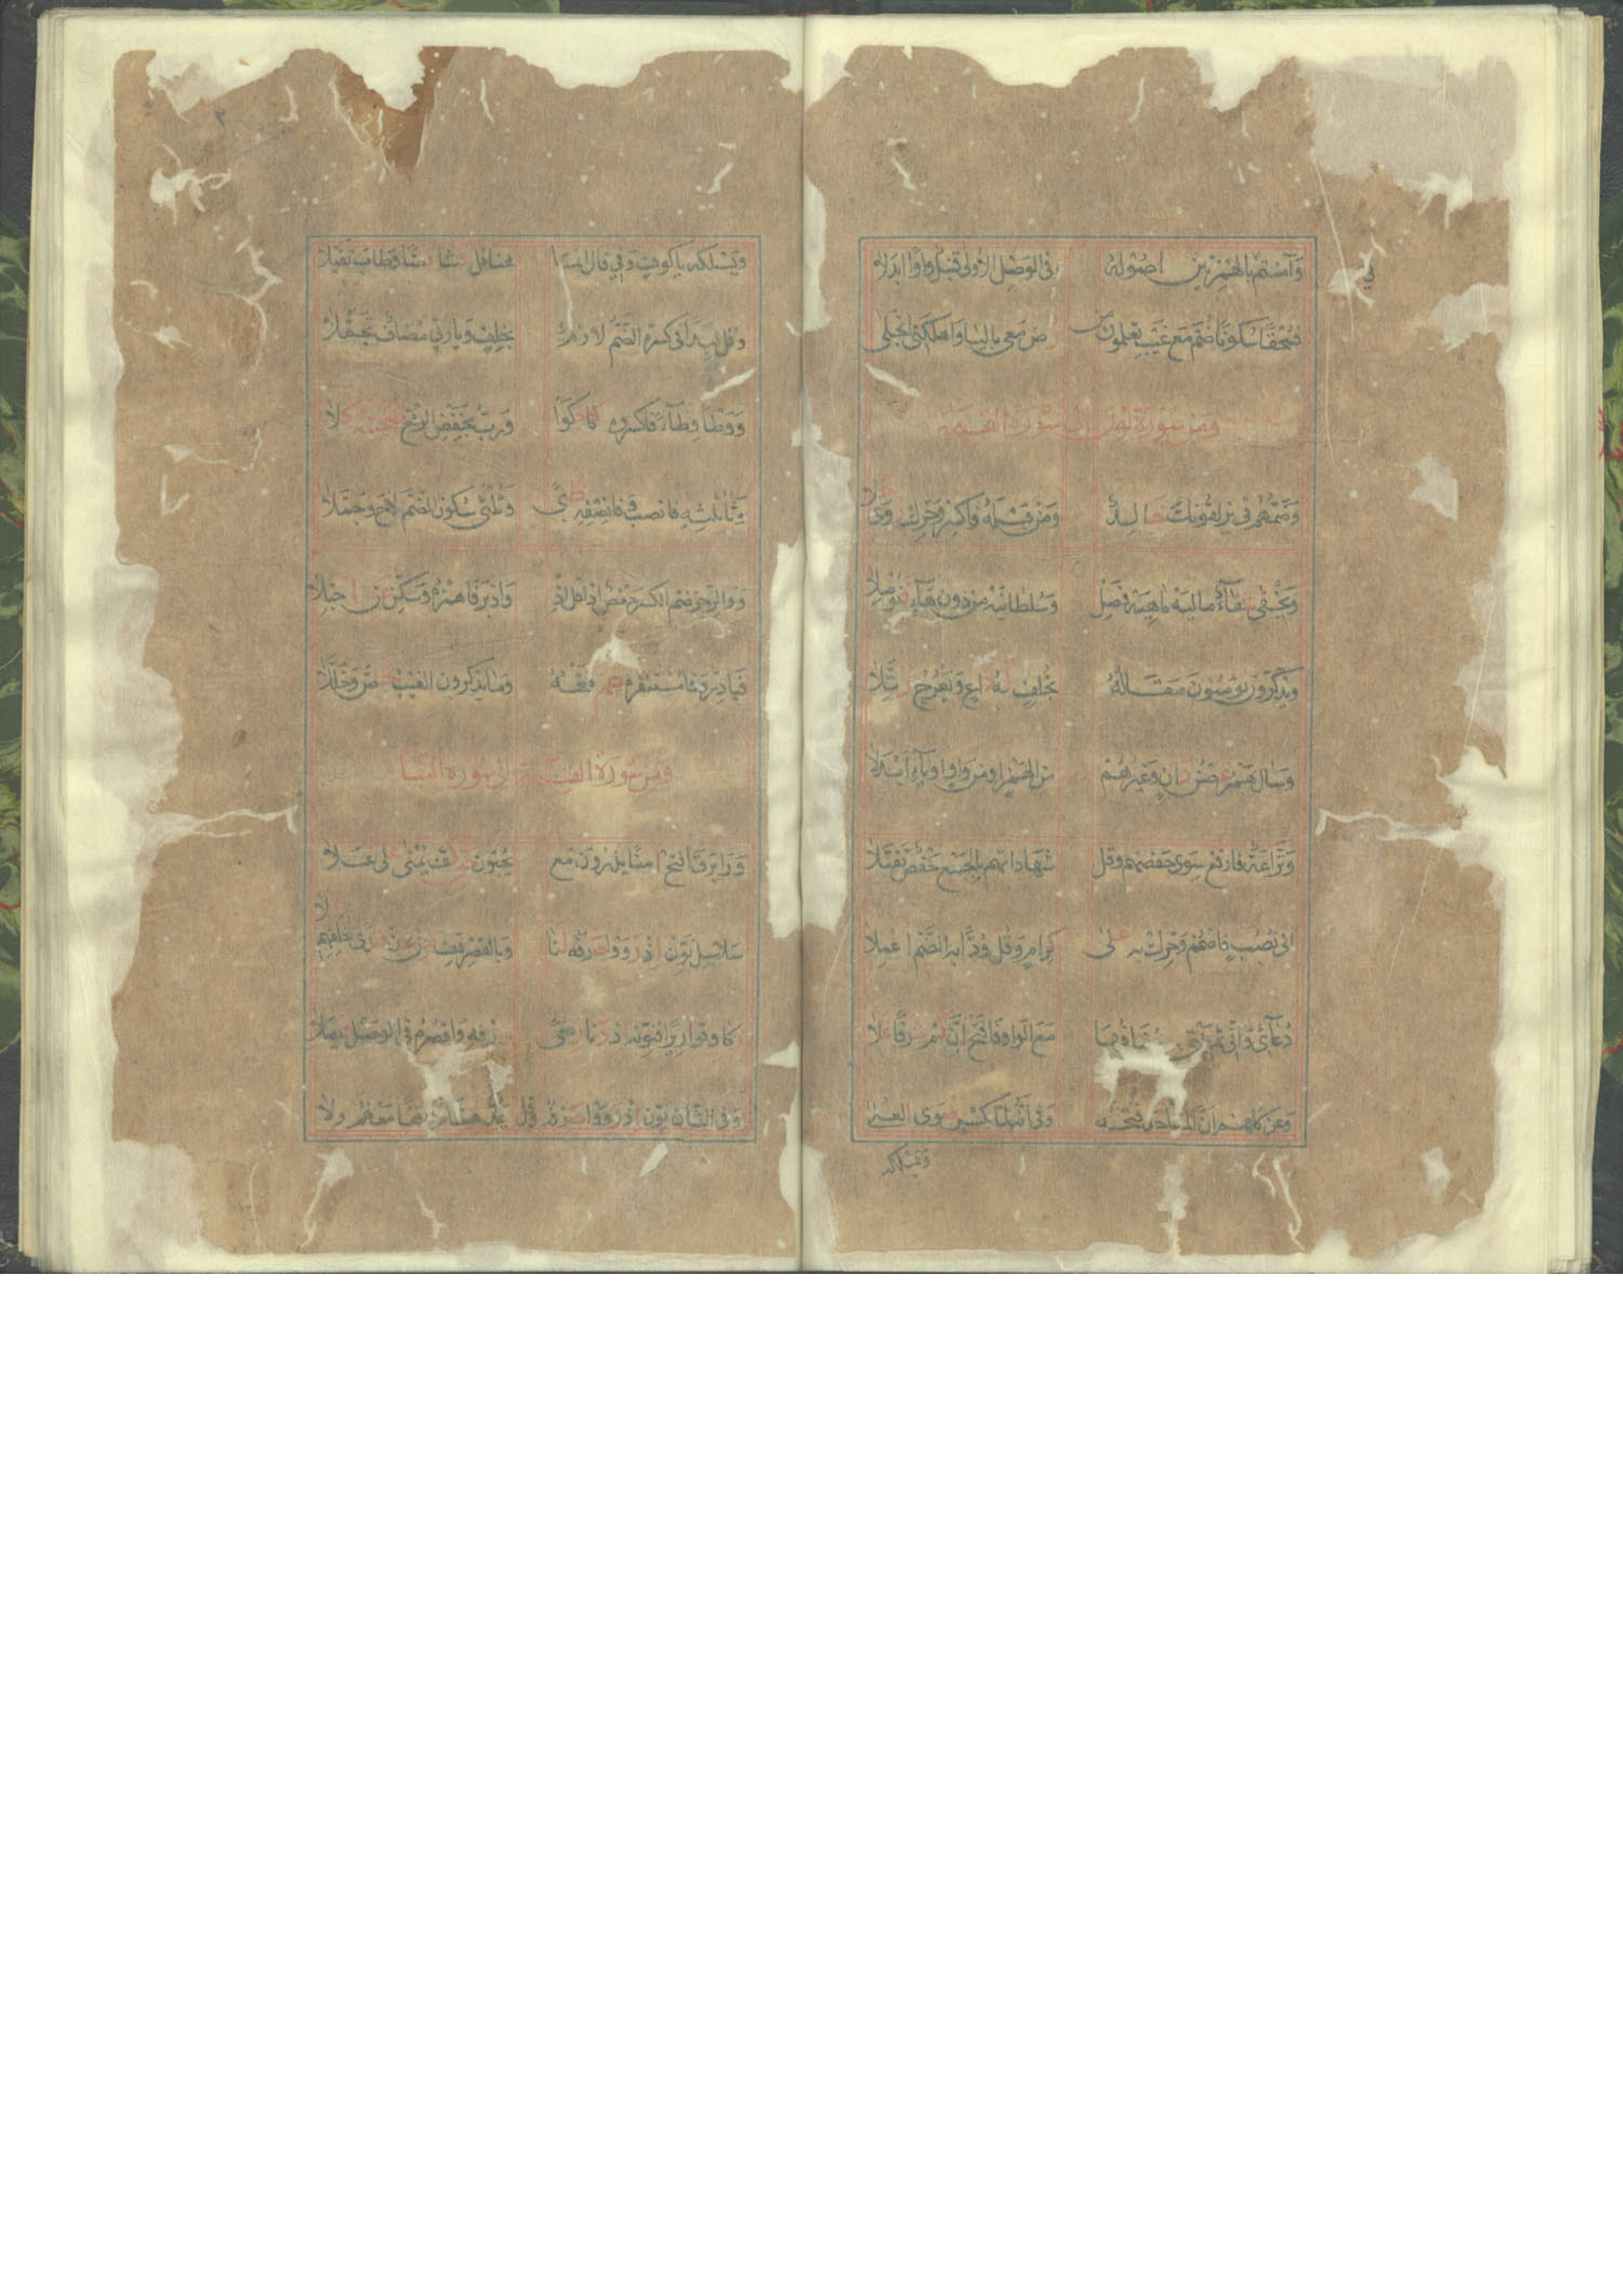 وَآمنتم بالهمزتين اصُولهُ في الوَصْلِ الاولى قنبل واوًا ابدلا
فسحقًا سكونًا ضُمَّ مَعَ غَيبِ يعلمون من رُض مَعي باليا وَاهلكني انجَلى
وَمن سُورَة نون الى سُورَة القيمة
وَضَمُّهُم في يزلقونك خالدٌ وَمَن قبلهُ فاكسر وَحَرك روى حلا
وَيَخفى شفآءً ماليه ماهيه فصِل وَسُلطانيه من دون هآءٍ فتوصلا
وَيذكرون يؤمنون مَقَاله بخُلفٍ له داعٍ وَيعرج رتلا
وَسَال بهمز غصن دانٍ وَغيرهم من الهمز او من واوٍ او يآءٍ ابدلا
وَنَزاعَة فارفع سِوى حفصهم وقل شَهَاداتهم بالجَمع حَفص تقبلا
الى نُصُبٍ فاضمم وَحرك به على كرامٍ وَقل وُدًّا به الضَّم اعملا
دُعآئى وَانى ثم بيتى مضافها مَعَ الواو فافتح ان كم شرفًا علا
وَعن كلهم ان المساجد فتحه وَفى انه لما بكسرٍ صُوى العلا
وَيسلكه
وَيَسلكه يا كوفٍ وَفى قال انما هنا قل فشا نصًّا وَطاب تقبلا
وَقل لبدًا فى كسره الضَّم لازم بخلفٍ وَيا ربى مضاف تجملا
وَوَطأً وِطآءً فاكسروه كما حكَوا وَربُّ بخفض الرفع صحبته كلا
وَثا ثلثه فانصب وَفا نصفه ظبى وَثلثى سُكون الضَّم لاح وَجملا
وَوَالرجز ضم الكسر حَفص اذا قل اذ وَادبَر فاهمزه وَسَكن عن اجتلا
فبادر وَفا مستنفره عم فتحه وَما يذكرون الغيب خُصَّ وَخُلّلا
وَمن سُورَة القيمة الى سُورَة النبا
وَرَا برق افتح آمنًا يذرون مَعَ يحبون حق كف يمنى على علا
سَلاسِل نَوّن اذ رووا صَرفه لنا وَبالقصر قف من عن هدى خلفهم فلا
زكا وقواريرًا فنوّنه اذ دنا رضى صَرفه وَاقصره فى الوصل فيصلا
وَفى الثان نوّن اذ رووا صَرفه وَقل يمد هشام وَاقفًا مَعهم ولا